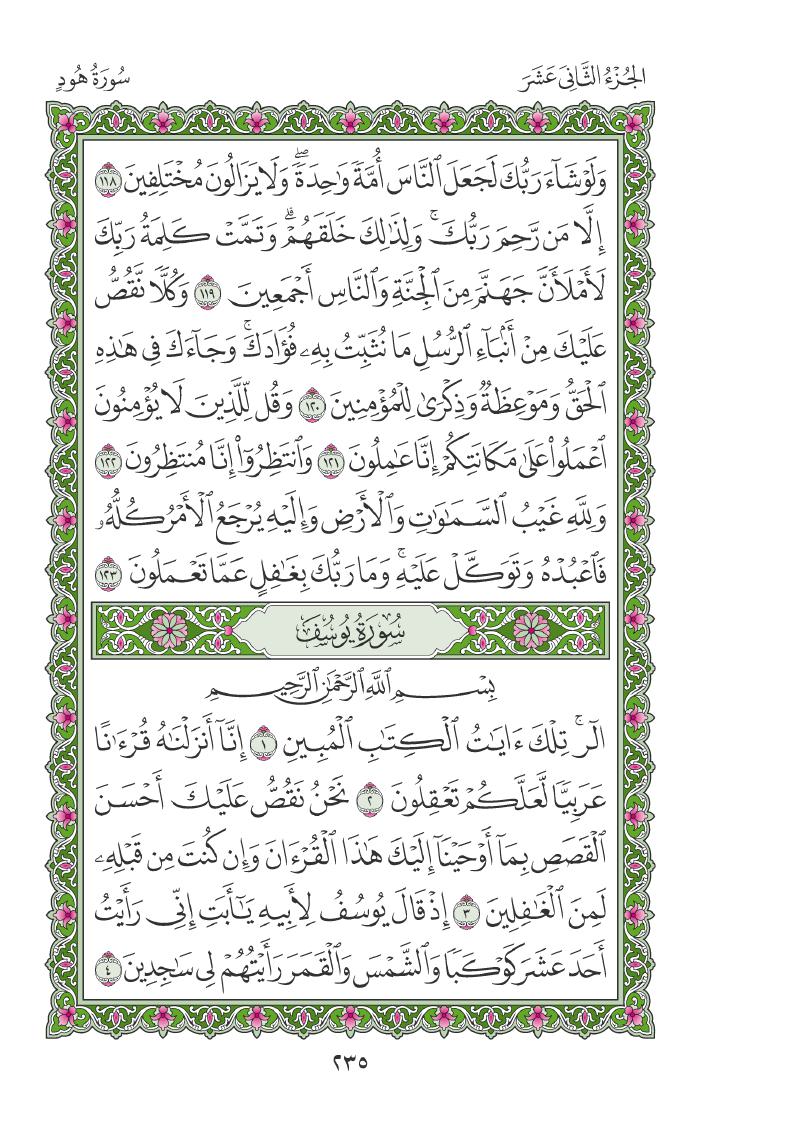 الجُزْءُ الثَّانِي عَشَرَ
سُورَةُ هُودٍ
وَلَوْ شَآءَ رَبُّكَ لَجَعَلَ ٱلنَّاسَ أُمَّةً وَٰحِدَةًۖ وَلَا يَزَالُونَ مُخْتَلِفِينَ ١١٨
إِلَّا مَن رَّحِمَ رَبُّكَۚ وَلِذَٰلِكَ خَلَقَهُمْۗ وَتَمَّتْ كَلِمَةُ رَبِّكَ
لَأَمْلَأَنَّ جَهَنَّمَ مِنَ ٱلْجِنَّةِ وَٱلنَّاسِ أَجْمَعِينَ ١١٩ وَكُلًّا نَّقُصُّ
عَلَيْكَ مِنْ أَنۢبَآءِ ٱلرُّسُلِ مَا نُثَبِّتُ بِهِۦ فُؤَادَكَۚ وَجَآءَكَ فِي هَٰذِهِ
ٱلْحَقُّ وَمَوْعِظَةٌ وَذِكْرَىٰ لِلْمُؤْمِنِينَ ١٢٠ وَقُل لِّلَّذِينَ لَا يُؤْمِنُونَ
ٱعْمَلُوا۟ عَلَىٰ مَكَانَتِكُمْ إِنَّا عَٰمِلُونَ ١٢١ وَٱنتَظِرُوٓا۟ إِنَّا مُنتَظِرُونَ ١٢٢
وَلِلَّهِ غَيْبُ ٱلسَّمَٰوَٰتِ وَٱلْأَرْضِ وَإِلَيْهِ يُرْجَعُ ٱلْأَمْرُ كُلُّهُۥ
فَٱعْبُدْهُ وَتَوَكَّلْ عَلَيْهِۚ وَمَا رَبُّكَ بِغَٰفِلٍ عَمَّا تَعْمَلُونَ ١٢٣
سُورَةُ يُوسُفَ
بِسْمِ ٱللَّهِ ٱلرَّحْمَٰنِ ٱلرَّحِيمِ
الٓرۚ تِلْكَ ءَايَٰتُ ٱلْكِتَٰبِ ٱلْمُبِينِ ١ إِنَّآ أَنزَلْنَٰهُ قُرْءَٰنًا
عَرَبِيًّا لَّعَلَّكُمْ تَعْقِلُونَ ٢ نَحْنُ نَقُصُّ عَلَيْكَ أَحْسَنَ
ٱلْقَصَصِ بِمَآ أَوْحَيْنَآ إِلَيْكَ هَٰذَا ٱلْقُرْءَانَ وَإِن كُنتَ مِن قَبْلِهِۦ
لَمِنَ ٱلْغَٰفِلِينَ ٣ إِذْ قَالَ يُوسُفُ لِأَبِيهِ يَٰٓأَبَتِ إِنِّي رَأَيْتُ
أَحَدَ عَشَرَ كَوْكَبًا وَٱلشَّمْسَ وَٱلْقَمَرَ رَأَيْتُهُمْ لِي سَٰجِدِينَ ٤
٢٣٥